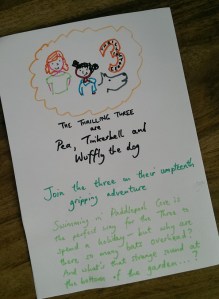 3
THE THRILLING THREE
are
Pea, Tinkerbell and
Wuffly the dog
Join the three on their umpteenth
gripping adventure
Swimming in Paddlepool Cove is
the perfect way for the Three to
spend a holiday - but why are
there so many bats overhead?
And what's that strange sound at
the bottom of the garden...?